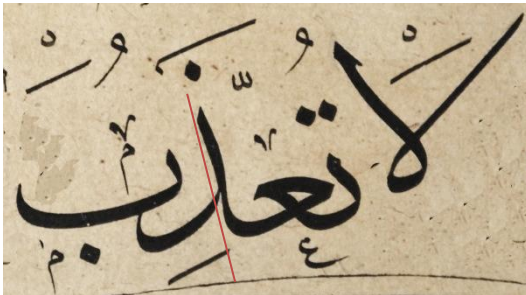 لَا تُعَذِّب